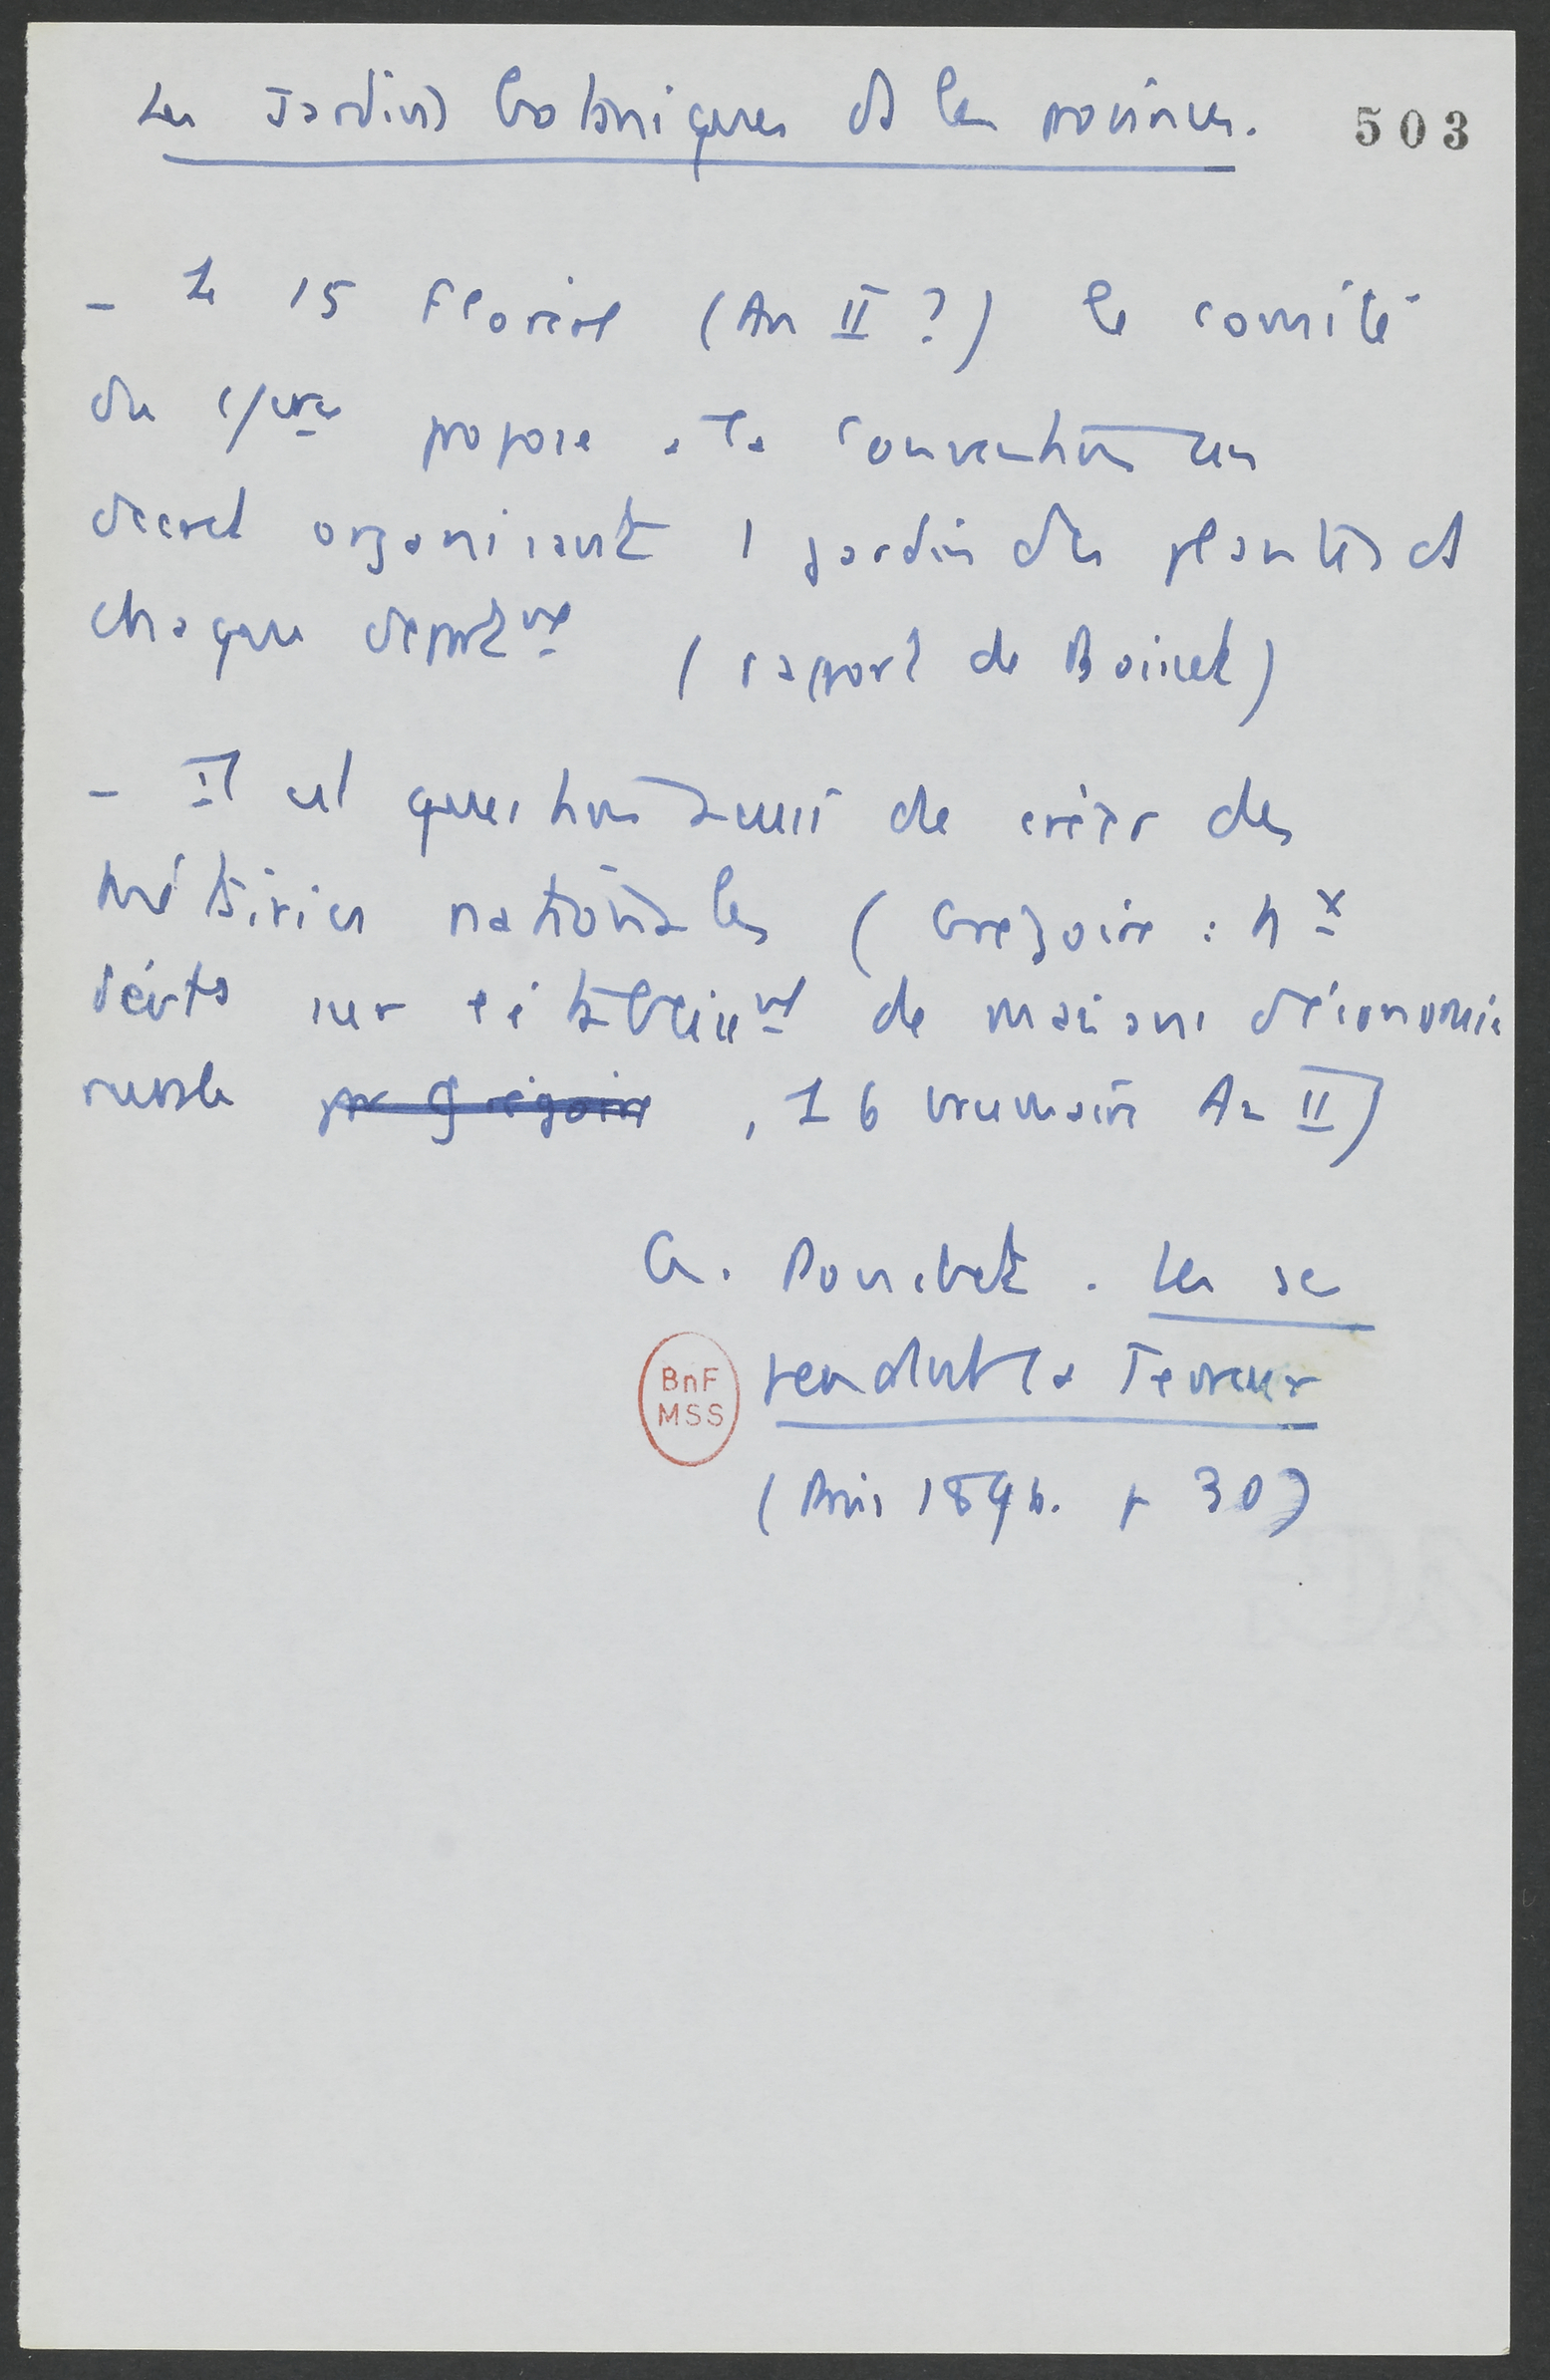 Les Jardins botaniques ds les provinces. 503
- Le 15 Floréal (An II ?) le comité
du propose a la Convention un
decret organisant 1 jardin des plantes ds
chaque deptmt (rapport de Boissel)
- Il est question aussi de créer des
métairies nationales (Gregoire :
sur l'établissmt de maisons d'économie
rurale par Grégoire, 16 brumaire An II)
G. Pouchet. Les sc
pendant la Terreur
BnF
MSS
(Paris 1896. p 30)